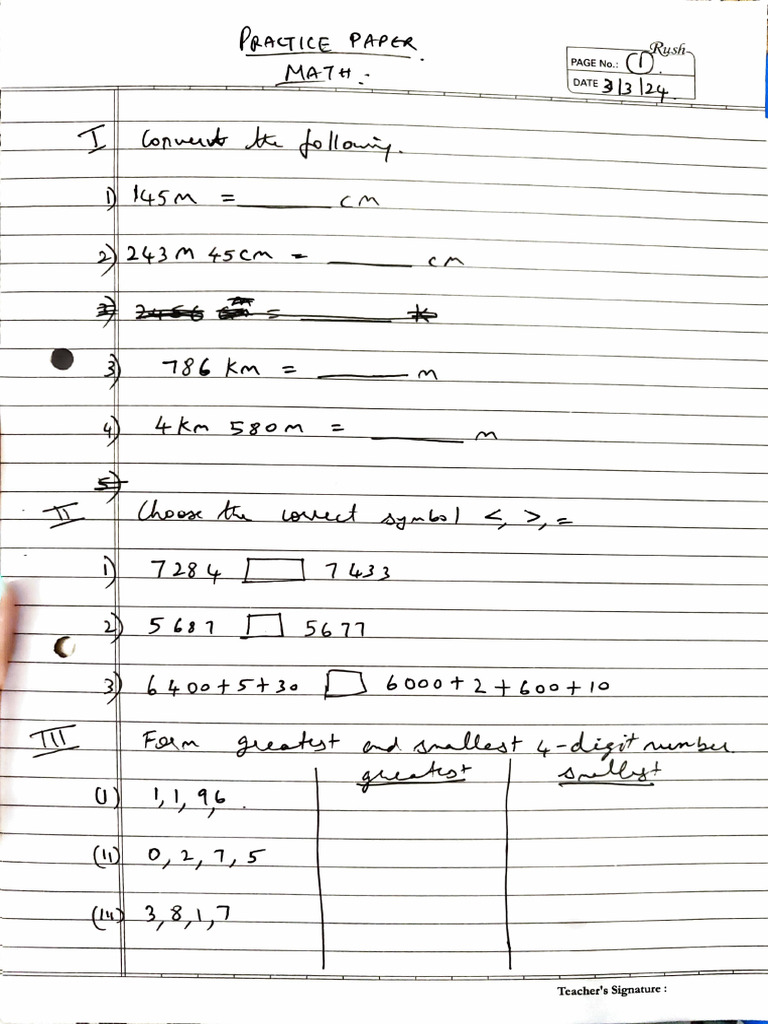 PRACTICE PAPER
MATH :-
Rush
PAGE No.: 1
DATE 3/3/24
I Convert the following.
1) 145m = ______ cm
2) 243m 45cm = ______ cm
3) 786 km = ______ m
4) 4km 580m = ______ m
II Choose the correct symbol <, >, =
1) 7284 □ 7433
2) 5687 □ 5677
3) 6400+5+30 □ 6000+2+600+10
III Form greatest and smallest 4-digit number
greatest smallest
(I) 1, 1, 9, 6.
(II) 0, 2, 7, 5
3, 8, 1, 7
Teacher's Signature :